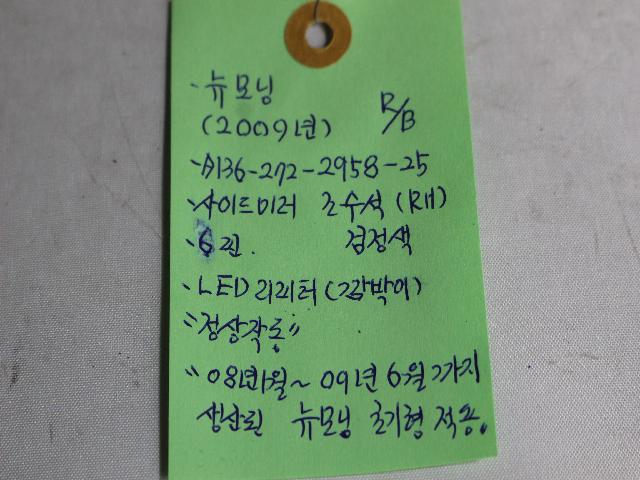 - 뉴모닝
(2009년) R/B
- A136-272-2958-25
- 사이드미러 조수석 (RH)
- 6핀. 검정색
- LED 리피터 (깜박이)
"정상작동"
" 08년1월~09년6월까지
생산된 뉴모닝 초기형 적용.